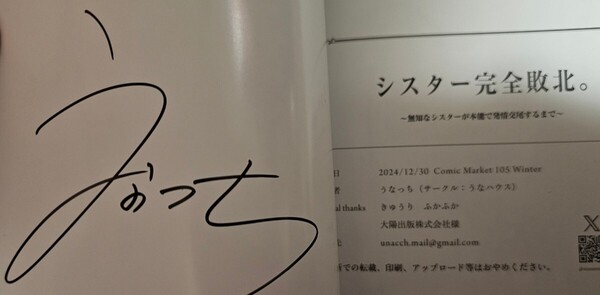 うなっち
シスター完全敗北。
~無知なシスターが本能で発情交尾するまで~
日 2024/12/30 Comic Market 105 Winter
者 うなっち（サークル：うなハウス）
al thanks きゅうり ふかふか
大陽出版株式会社様
unacch.mail@gmail.com
での転載、印刷、アップロード等はおやめください。